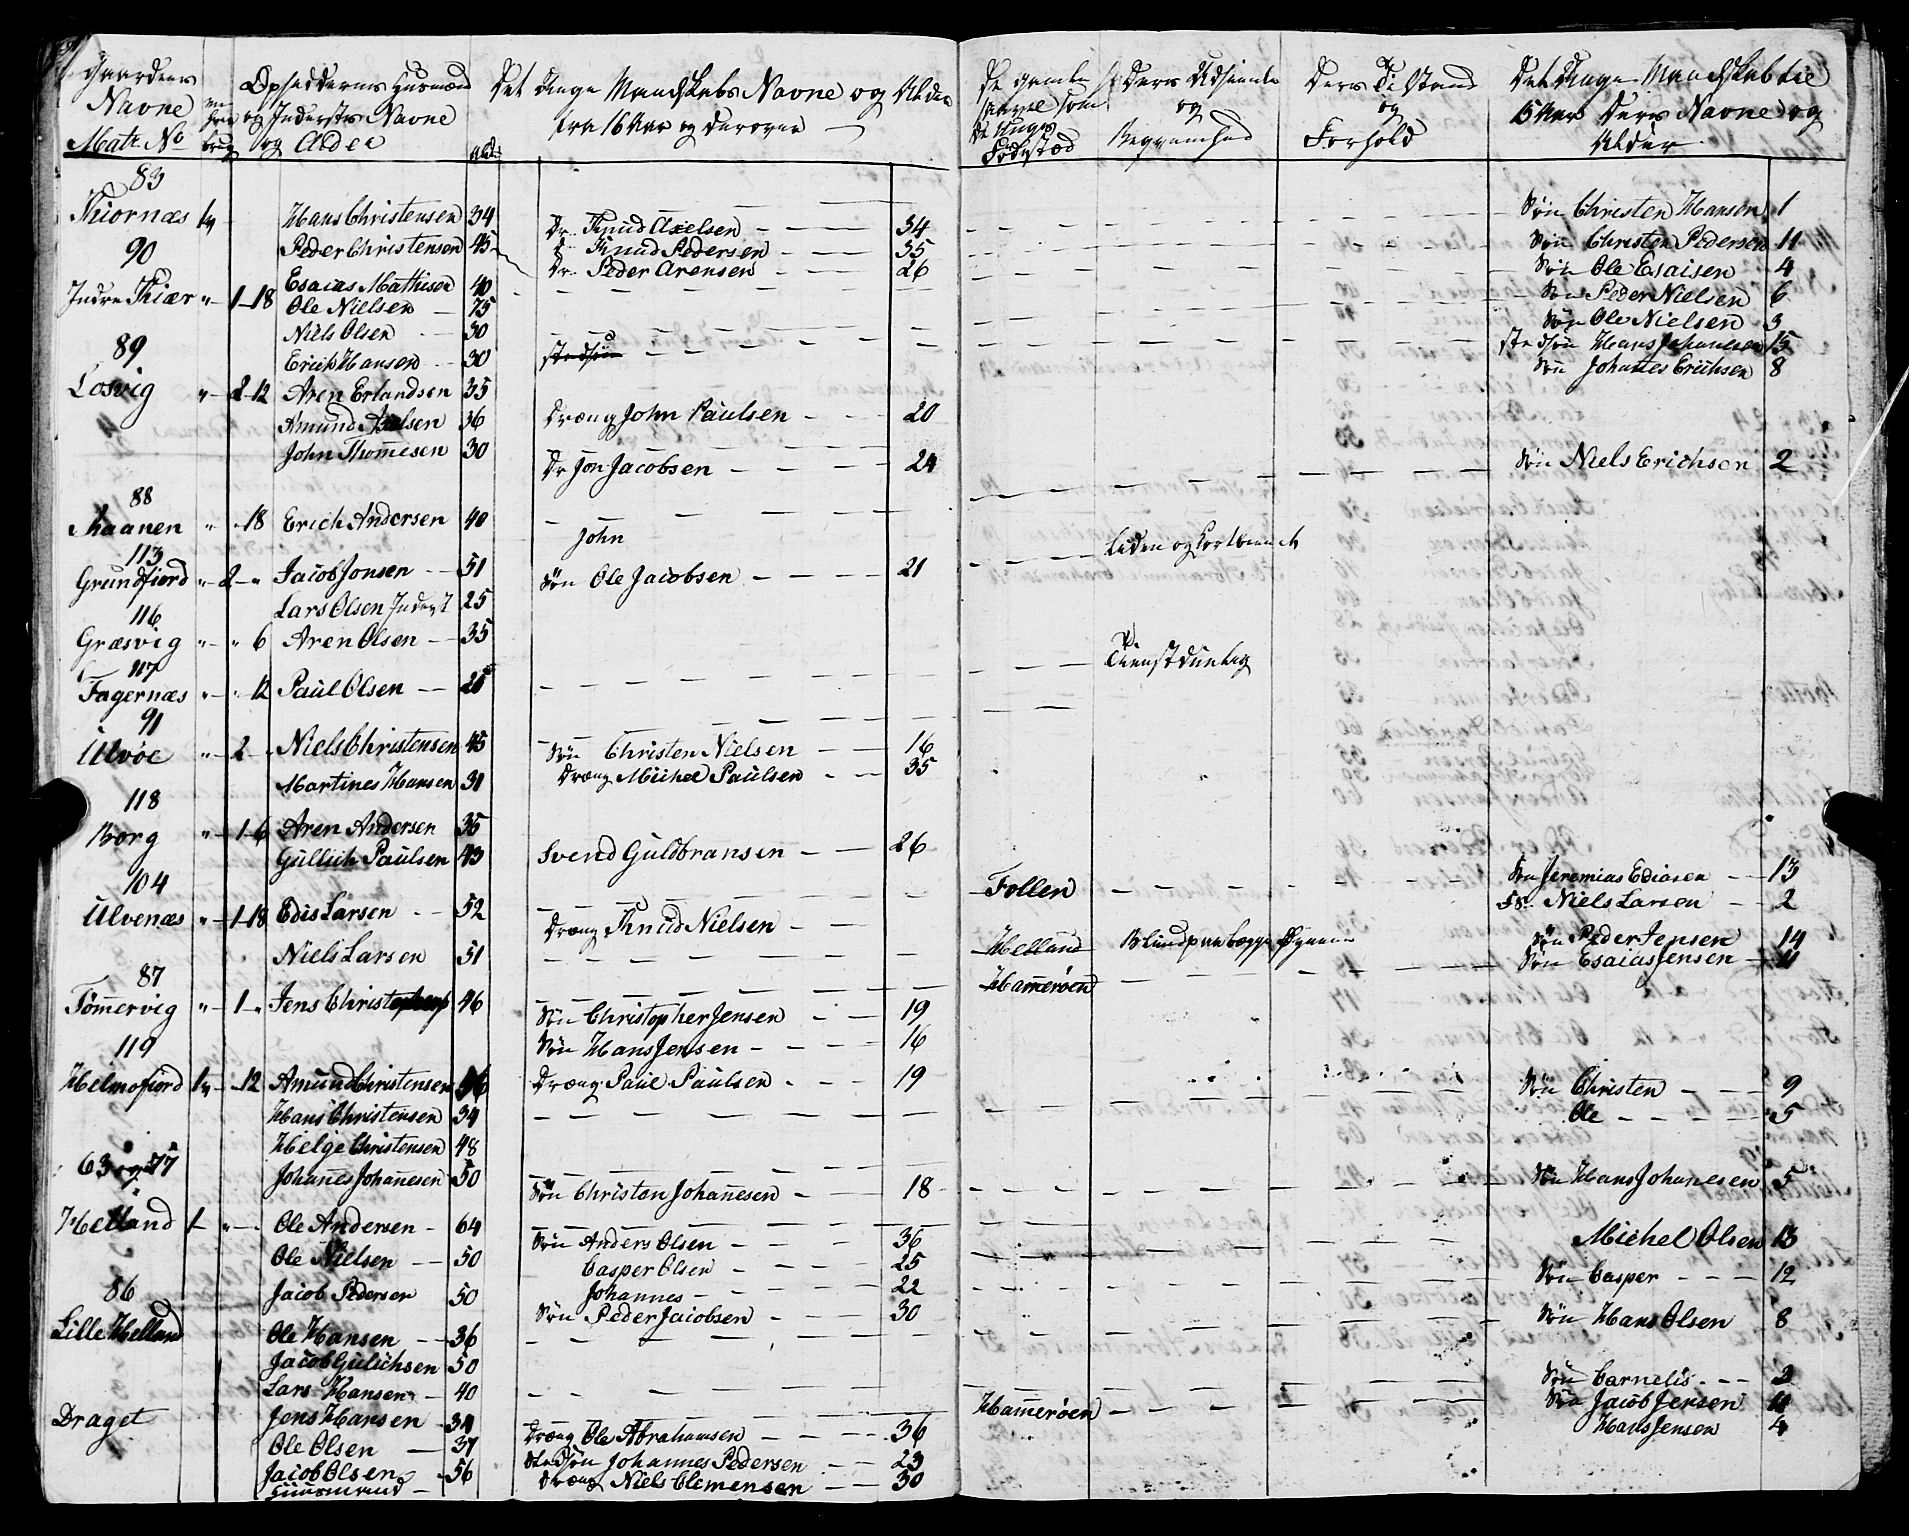 Gaardens Navne Matr. No
Opsidderns Husmænd og Inderstes Navne og Alder
Det Unge Mandskabs Navne og Alder fra 16 Aar og derover
De gamle saavel som De Unges Fødested
Deres Udseende og Beqvemhed
Deres Tilstand og Forhold
Det Unge Mandskab til 15 Aar Deres Navne og Alder
83
Thiornæs 1 Hans Christensen 34 Søn Christen Hansen 1
Dr. Knud Axelsen 34
90 Peder Christensen 45 Knud Pedersen 35 Søn Christen Pedersen 11
Dr. Peder Arensen 26 Søn Ole Esaisen 4
Esaias Mathisen 40
Indre Kiær 1 18 Ole Nielsen 75 Søn Peder Nielsen 6
Niels Olsen 30 Søn Ole Nielsen 3
89 Erich Hansen 30 stedsøn stedsøn Hans Johansen 15
Søn Johannes Erichsen 8
Losvig 2 12 Aren Erlandsen 35
Amund Axelsen 36 Dræng John Paulsen 20
John Thomesen 30 Dr Jon Jacobsen 24 Søn Niels Erichsen 2
88
Maanen 18 Erich Andersen 40
113 John
Grundfiord 2 Jacob Jonsen 51 Søn Ole Jacobsen 21 Liden og kortbeenet
Lars Olsen Inderst 25
116
Græsvig 6 Aren Olsen 35
117 Tienstdyctig
Fagernæs 12 Paul Olsen 25
91
Ulvøe 2 Niels Christensen 45 Søn Christen Nielsen 16
Martines Hansen 31 Dræng Michel Paulsen 35
118
Borg 1 6 Aren Andersen 35
Gullich Paulsen 43 Svend Guldbransen 26
104 Follen Søn Jeremias Edisen 13
Ulvenæs 1 18 Edis Larsen 52 Niels Larsen 2
Dræng Knud Nielsen Helland Blind paa begge Øynene Søn Peder Jensen 14
Niels Larsen 51 Søn Esaias Jensen 11
87 Hammerøen
Tömmervig 1 Jens Christophers 46 Søn Christopher Jensen 19
119 Søn Hans Jensen 16
Helmofiord 1 12 Amund Christensen 36 Dræng Paul Paulsen 19 Søn Christen 9
Hans Christensen 34 Ole 5
Helge Christensen 48
63 og 77 Johannes Johannesen 50 Søn Christen Johannesen 18 Søn Hans Johanesen 5
Helland 1 Ole Andersen 64 Søn Anders Olsen 36 Michel Olsen 13
Ole Nielsen 50 Casper Olsen 25 Søn Casper 12
86 Jacob Pedersen 50 Johannes 22
Søn Peder Jacobsen 30 Søn Hans Olsen 8
Lille Helland Ole Hansen 36
Jacob Gulichsen 50
Lars Hansen 40 Søn Carnelis 3
Draget Jens Hansen 34 Hammerøen Søn Jacob Jensen 11
Ole Olsen 37 Dræng Ole Abrahamsen 36 Hans Jensen 4
Jacob Olsen 56 Stedsøn Johannes Pedersen 23
Huusmænd Dræng Niels Clemensen 30